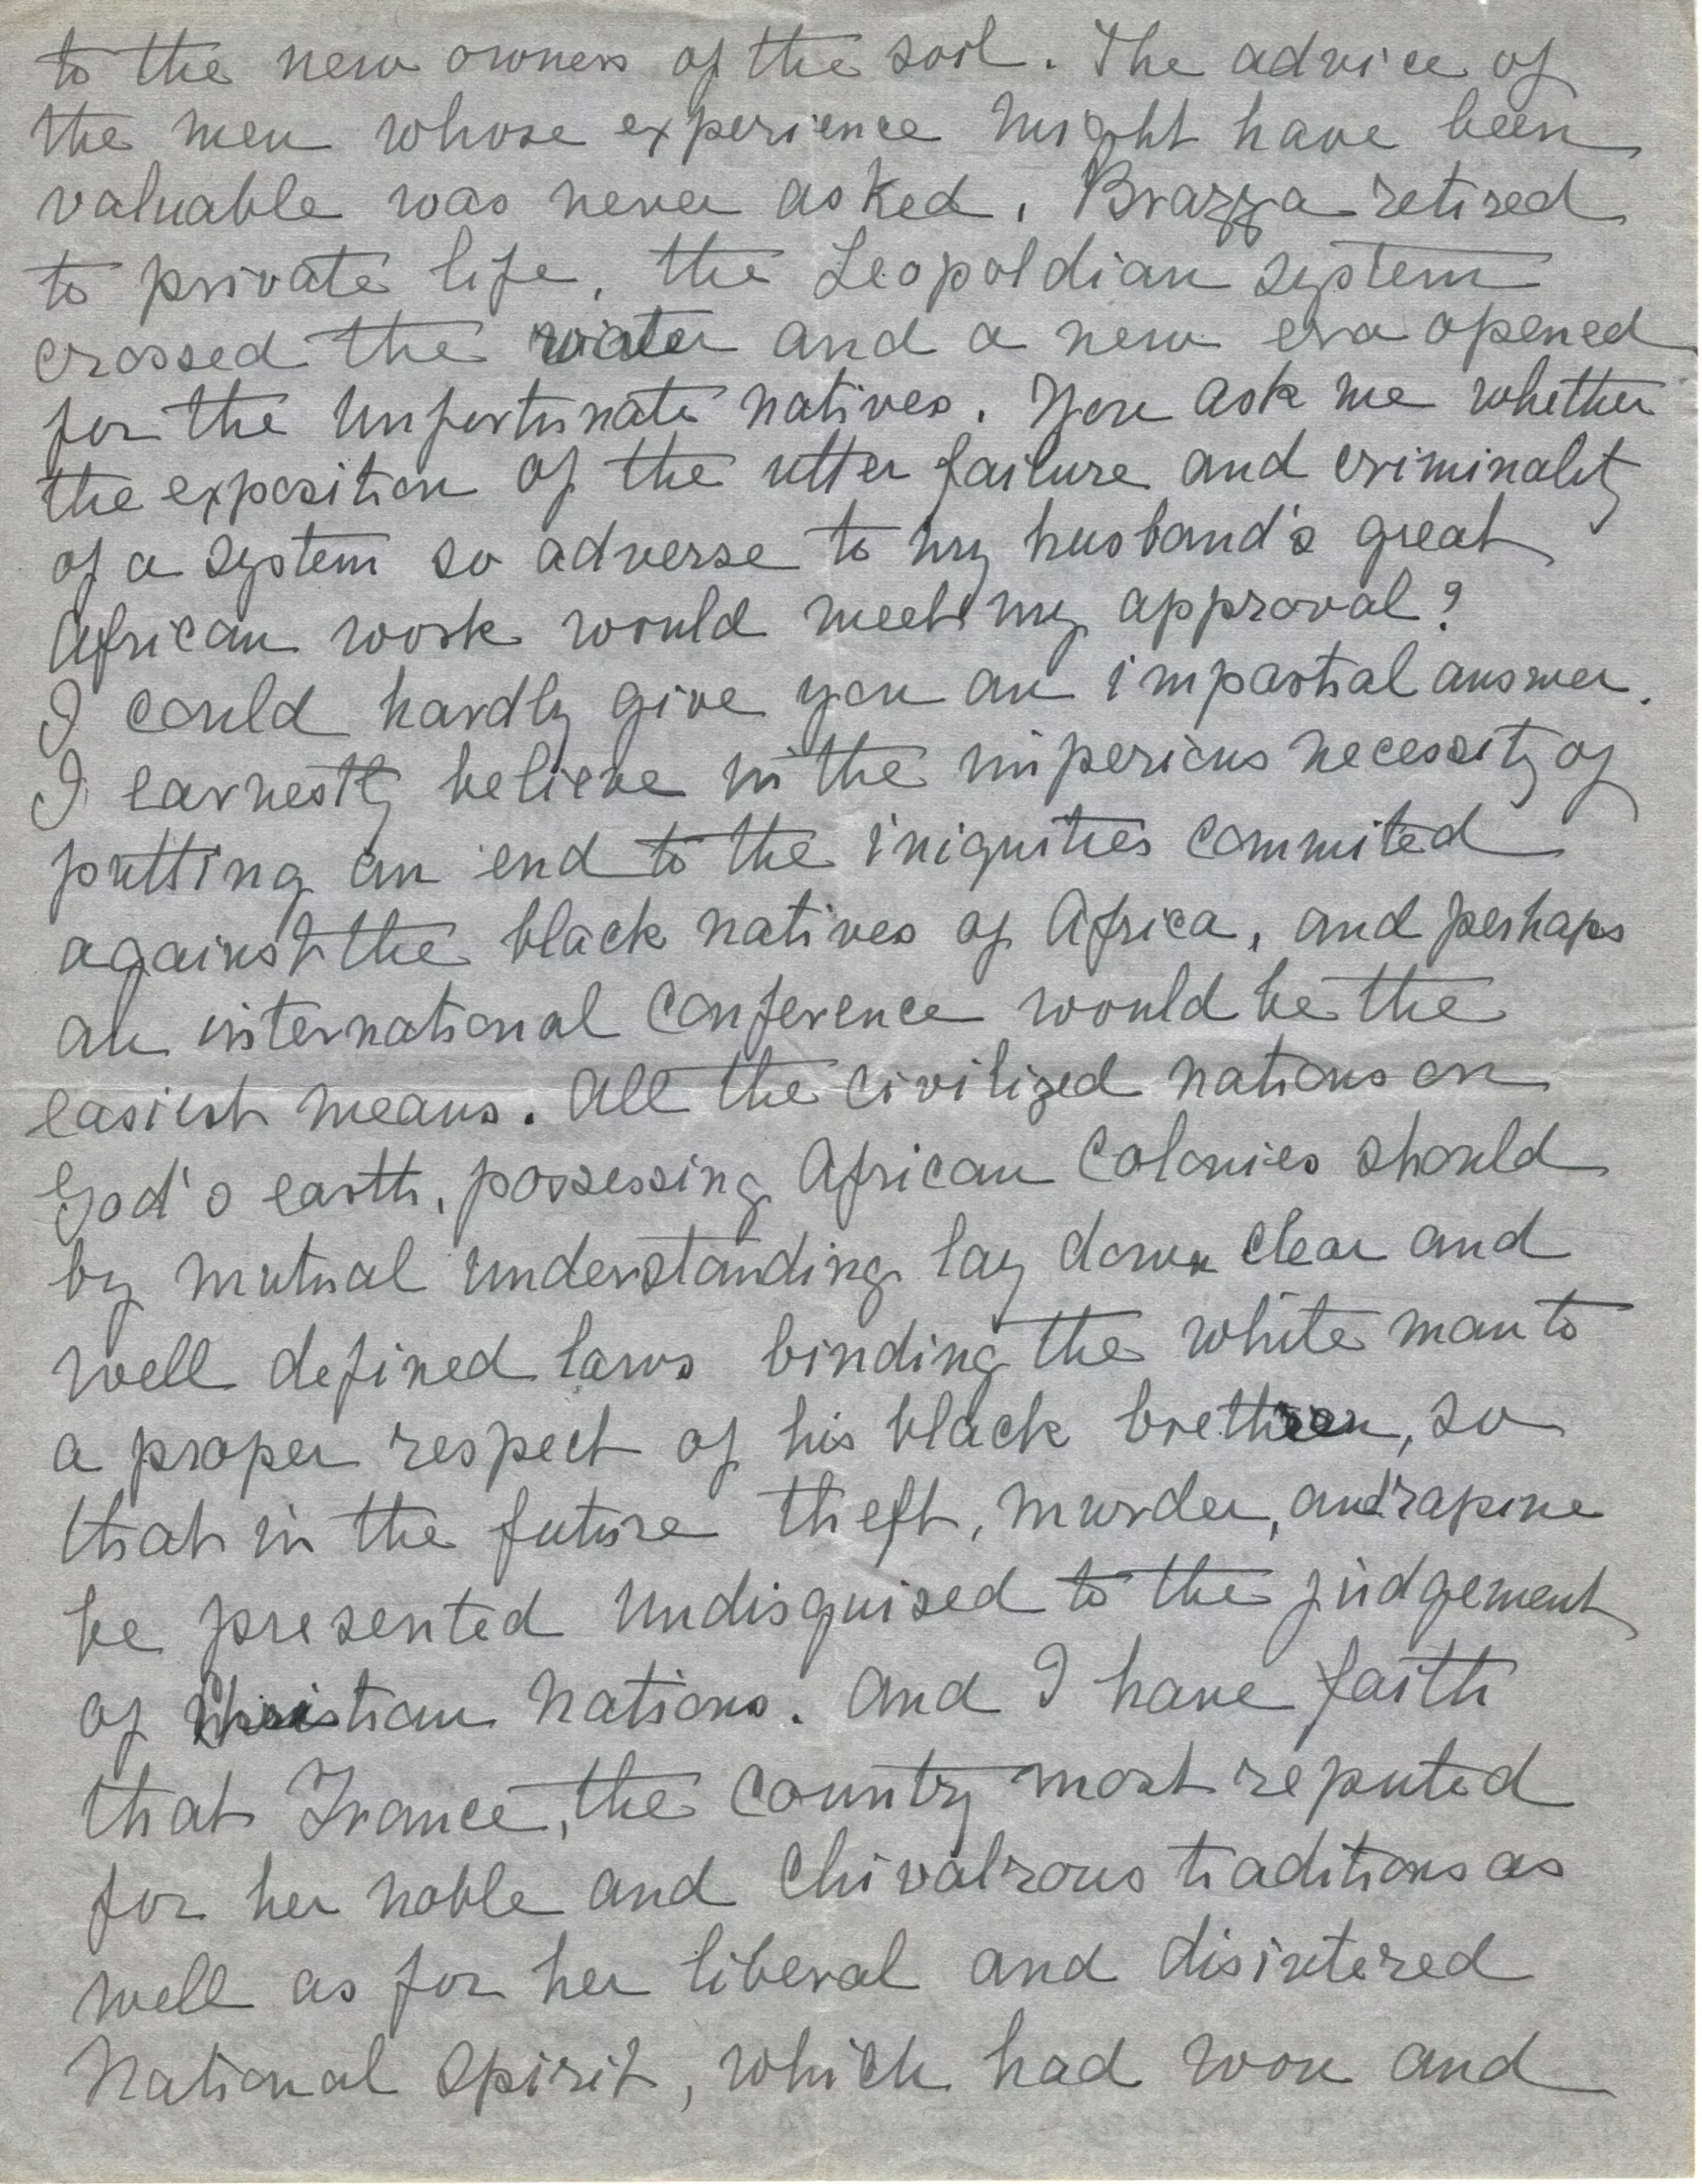 to the new owners of the soil. The advice of
the men whose experience might have been
valuable was never asked. Brazza retired
to private life, the Leopoldian system
crossed the water and a new era opened
for the unfortunate natives. You ask me whether
the exposition of the utter failure and criminality
of a system so adverse to my husband's great
African work would meet my approval?
I could hardly give you an impartial answer.
I earnestly believe in the imperious necessity of
putting an end to the iniquities commited
against the black natives of Africa, and perhaps
an international conference would be the
easiest means. All the civilized nations on
God's earth, possessing African Colonies should
by mutual understanding lay down clear and
well defined laws binding the white man to
a proper respect of his black brethren, so
that in the future theft, murder, and rapine
be presented undisguised to the judgement
of Christian Nations. And I have faith
that France, the Country most reputed
for her noble and Chivalrous traditions as
well as for her liberal and disintered
National Spirit, which had won and